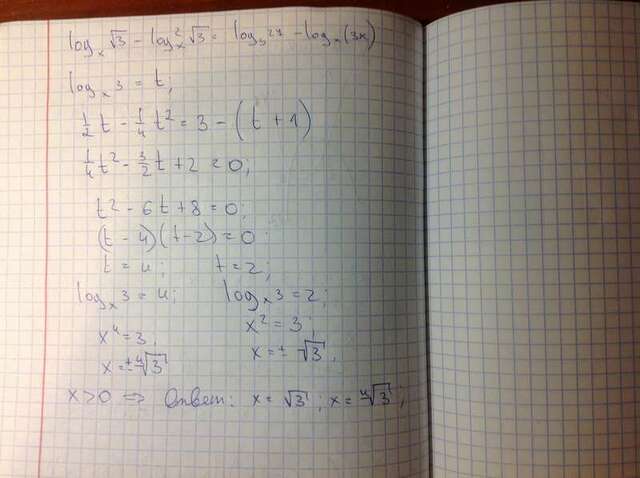 logₓ√3 - log²ₓ√3 = log₃27 - logₓ(3x)
logₓ3 = t;
1/2 t - 1/4 t² = 3 - (t + 1)
1/4 t² - 3/2 t + 2 = 0;
t² - 6t + 8 = 0;
(t - 4)(t - 2) = 0;
t = 4; t = 2;
logₓ3 = 4; logₓ3 = 2;
x⁴ = 3; x² = 3;
x = ±⁴√3 x = ±√3;
x > 0 ⇒ Ответ: x = √3; x = ⁴√3;